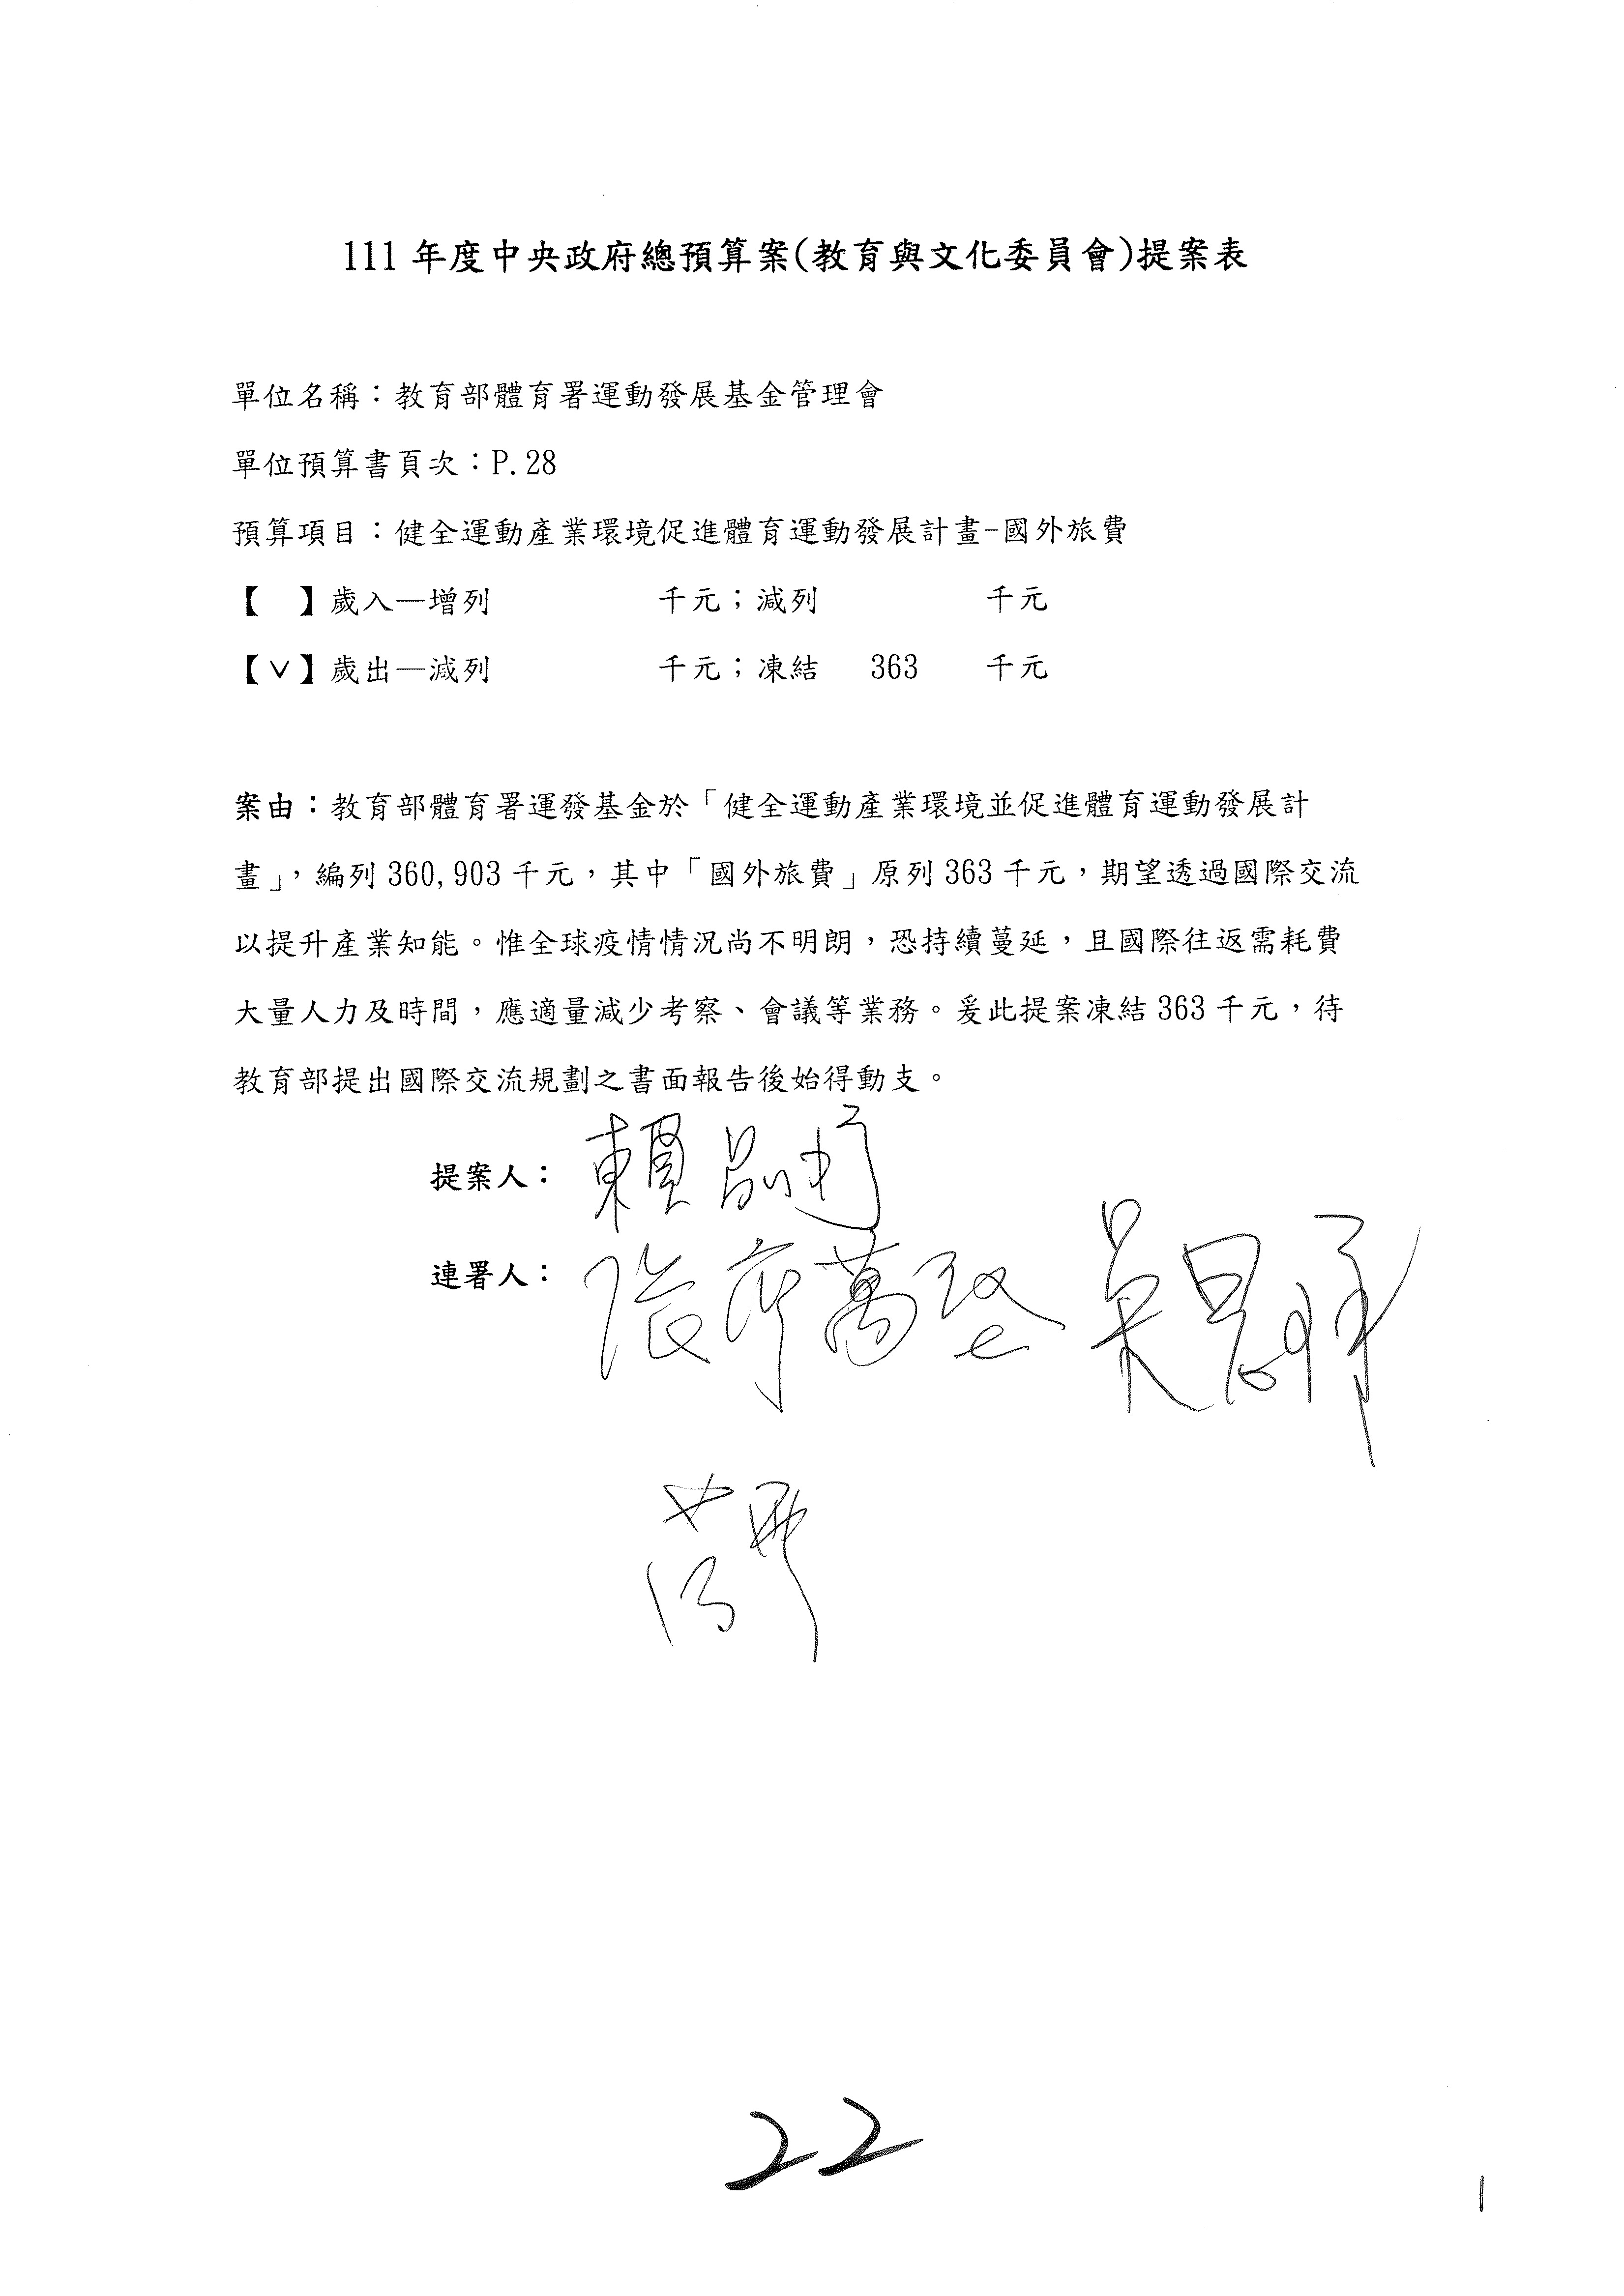 111 年度中央政府總預算案(教育與文化委員會)提案表
單位名稱：教育部體育署運動發展基金管理會
單位預算書頁次：P.28
預算項目：健全運動產業環境促進體育運動發展計畫-國外旅費
【　】歲入—增列　　　　　千元；減列　　　　　千元
【∨】歲出—減列　　　　　千元；凍結　363　千元
案由：教育部體育署運發基金於「健全運動產業環境並促進體育運動發展計
畫」，編列 360,903 千元，其中「國外旅費」原列 363 千元，期望透過國際交流
以提升產業知能。惟全球疫情情況尚不明朗，恐持續蔓延，且國際往返需耗費
大量人力及時間，應適量減少考察、會議等業務。爰此提案凍結 363 千元，待
教育部提出國際交流規劃之書面報告後始得動支。
提案人：賴品妤
連署人：張廖萬堅 吳思瑤
22
1